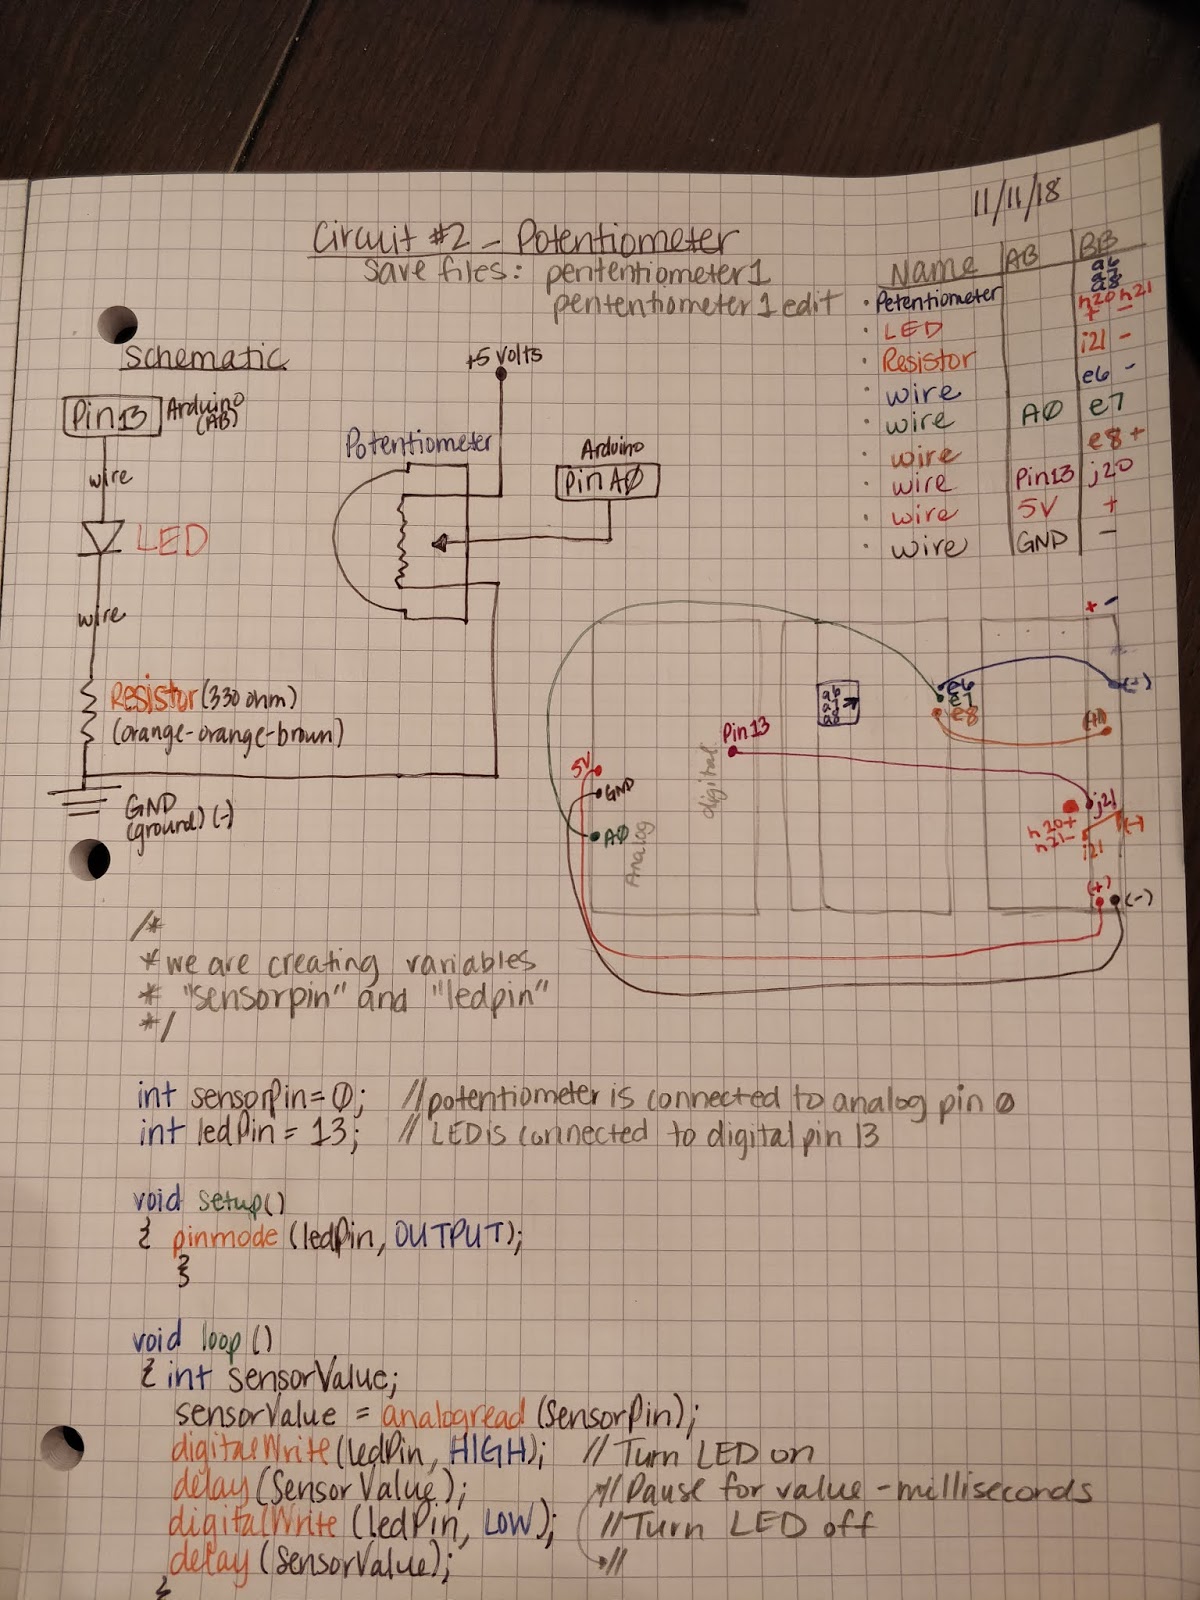 11/11/18
Circuit #2 - Potentiometer
Save files: pententiometer1
pententiometer1edit
Name AB BB
· Petentiometer a6 a7 a8
· LED h20 h21 + -
· Resistor i21 -
· wire e6 -
· wire AØ e7
· wire e8 +
· wire Pin13 j20
· wire 5V +
· wire GND -
Schematic
Pin 13 Arduino
(AB)
wire
LED
wire
Resistor (330 ohm)
(orange-orange-brown)
GND
(ground) (-)
+5 volts
Potentiometer
Arduino
Pin AØ
+ -
a6
a7
a8
e6
e7
e8
(-)
(+)
Pin 13
digital
5V
GND
AØ
Analog
j21
h20+
h21-
i21
(-)
(+) (-)
/*
* we are creating variables
* "sensorpin" and "ledpin"
*/
int sensorPin = Ø; // potentiometer is connected to analog pin Ø
int ledPin = 13; // LED is connected to digital pin 13
void setup()
{ pinmode (ledPin, OUTPUT);
}
void loop ()
{ int sensorValue;
sensorValue = analogread (SensorPin);
digitalWrite (ledPin, HIGH); // Turn LED on
delay (Sensor Value); // Pause for value - milliseconds
digitalWrite (ledPin, LOW); // Turn LED off
delay (SensorValue); //
}